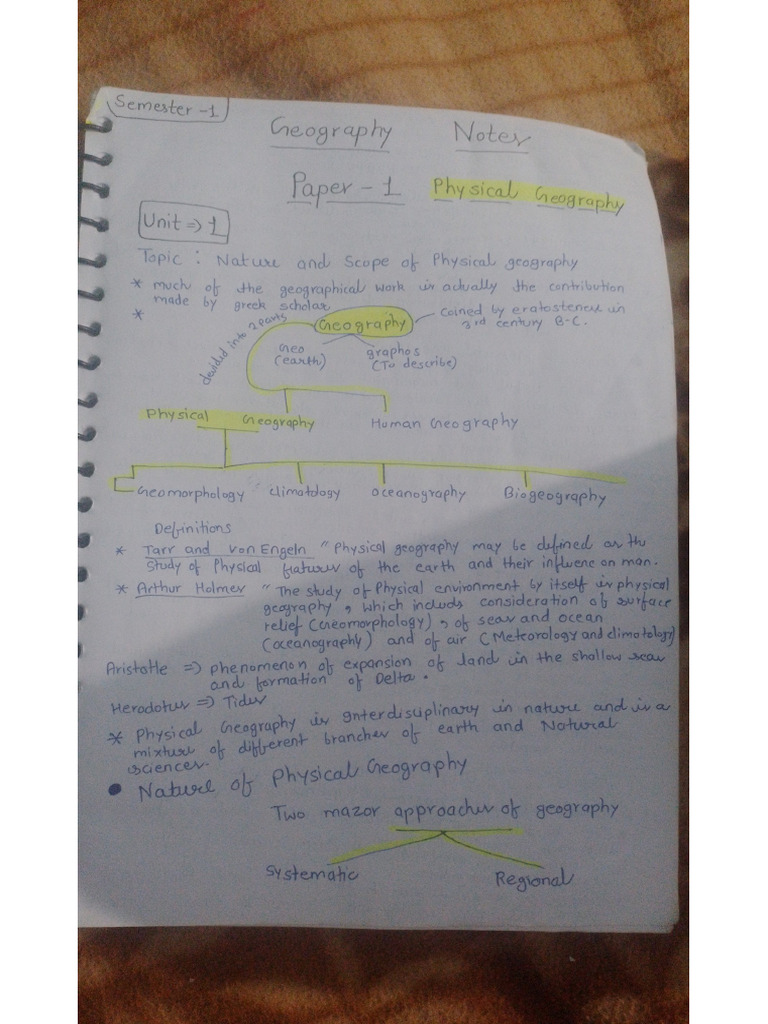 Semester -1
Geography Notes
Paper - 1 Physical Geography
Unit ⇒ 1
Topic : Nature and Scope of Physical geography
* much of the geographical work is actually the contribution
made by greek scholar
* Geography
coined by eratostenese in
3rd century B-C.
devided into 2 parts
Geo
(earth)
graphos
(To describe)
Physical Geography
Human Geography
Geomorphology climatology oceanography Biogeography
Definitions
* Tarr and von Engeln " Physical geography may be defined as the
study of Physical features of the earth and their influence on man.
* Arthur Holmes " The study of Physical environment by itself is physical
geography , which includs consideration of surface
relief (Geomorphology) , of seas and ocean
(oceanography) and of air (Meteorology and climatology)
Aristotle ⇒ phenomenon of expansion of land in the shallow seas
and formation of Delta .
Herodotus ⇒ Tides
* Physical Geography is interdisciplinary in nature and is a
mixture of different branches of earth and Natural
sciences.
• Nature of Physical Geography
Two mazor approaches of geography
Systematic
Regional